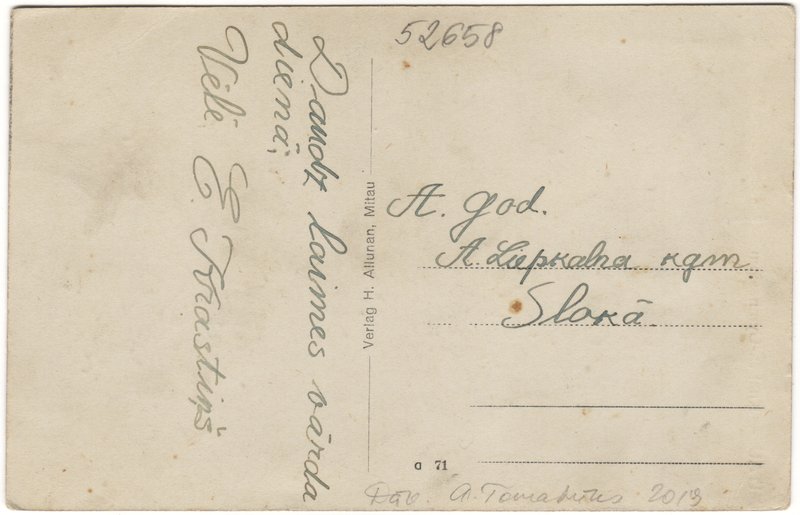 52658
Daudz laimes vārda
dienā,
Vēlē E. Krastiņš
Verlag H. Allunan, Mitau
A. god.
A. Liepkalna kgm
Slokā.
a 71
Dāv. A. 2013